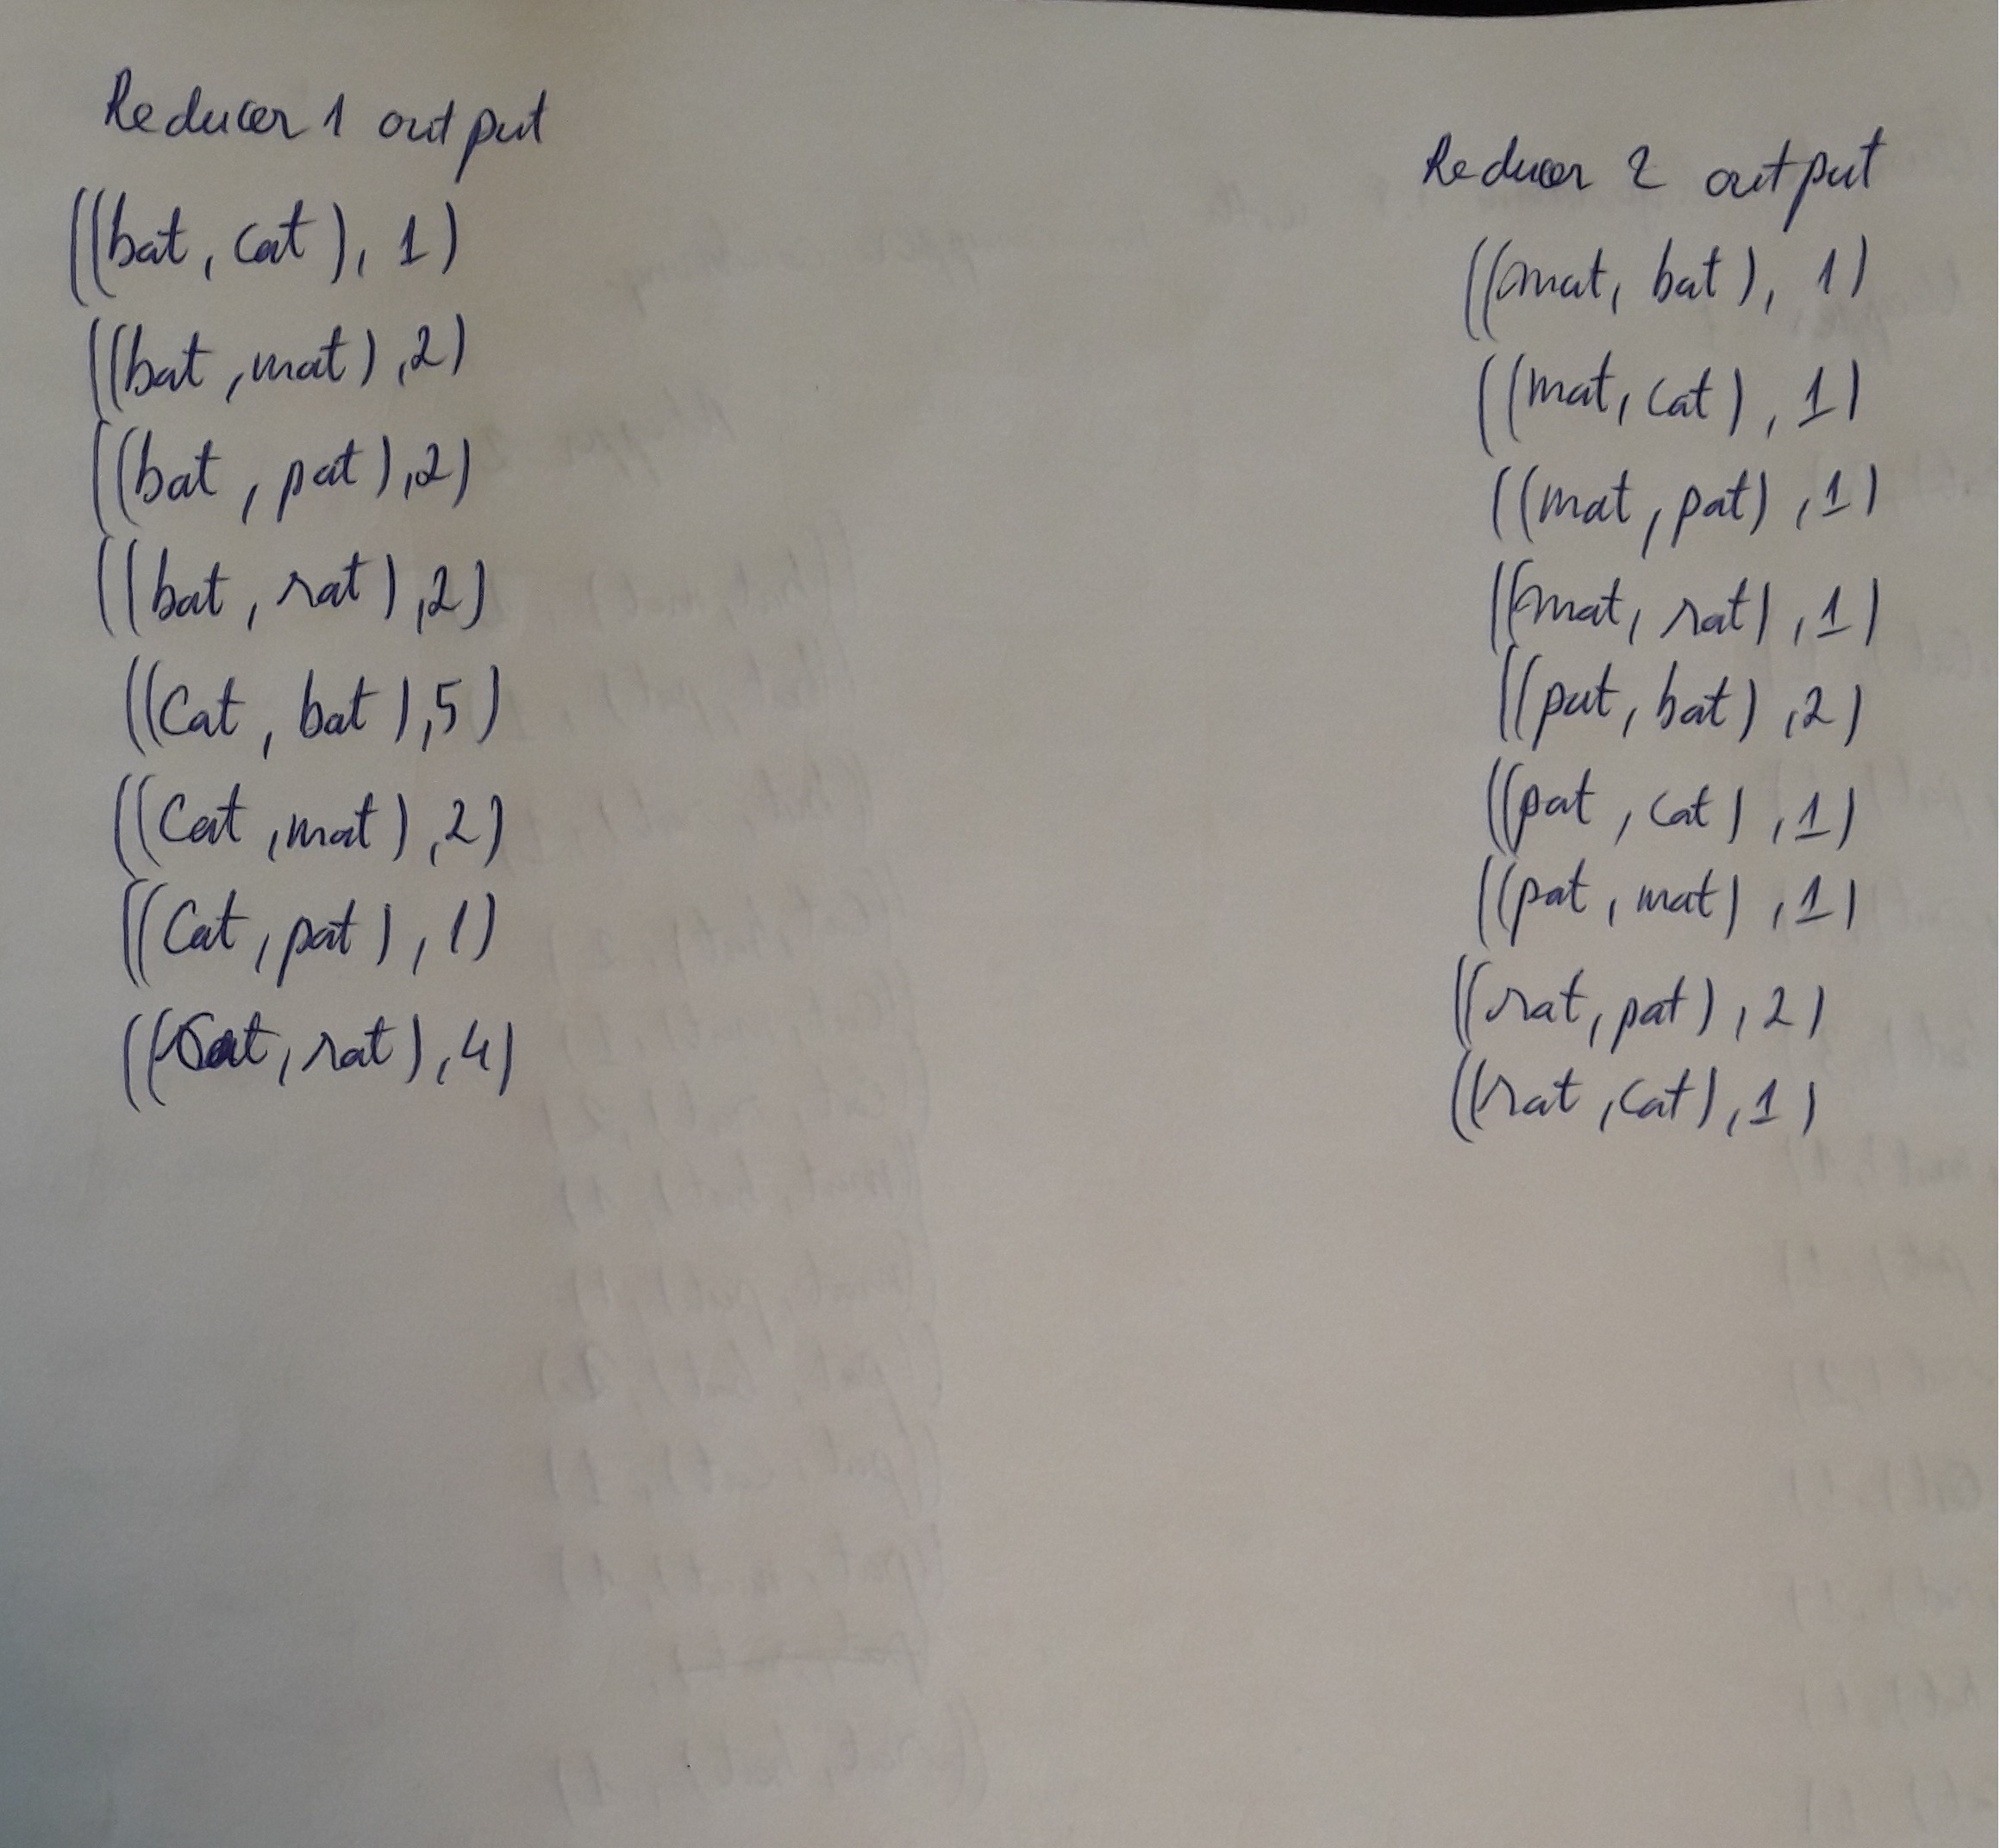 Reducer 1 output
((bat, cat), 1)
((bat, mat), 2)
((bat, pat), 2)
((bat, rat), 2)
((cat, bat), 5)
((cat, mat), 2)
((cat, pat), 1)
((cat, rat), 4)
Reducer 2 output
((mat, bat), 1)
((mat, cat), 1)
((mat, pat), 1)
((mat, rat), 1)
((pat, bat), 2)
((pat, cat), 1)
((pat, mat), 1)
((rat, pat), 2)
((rat, cat), 1)